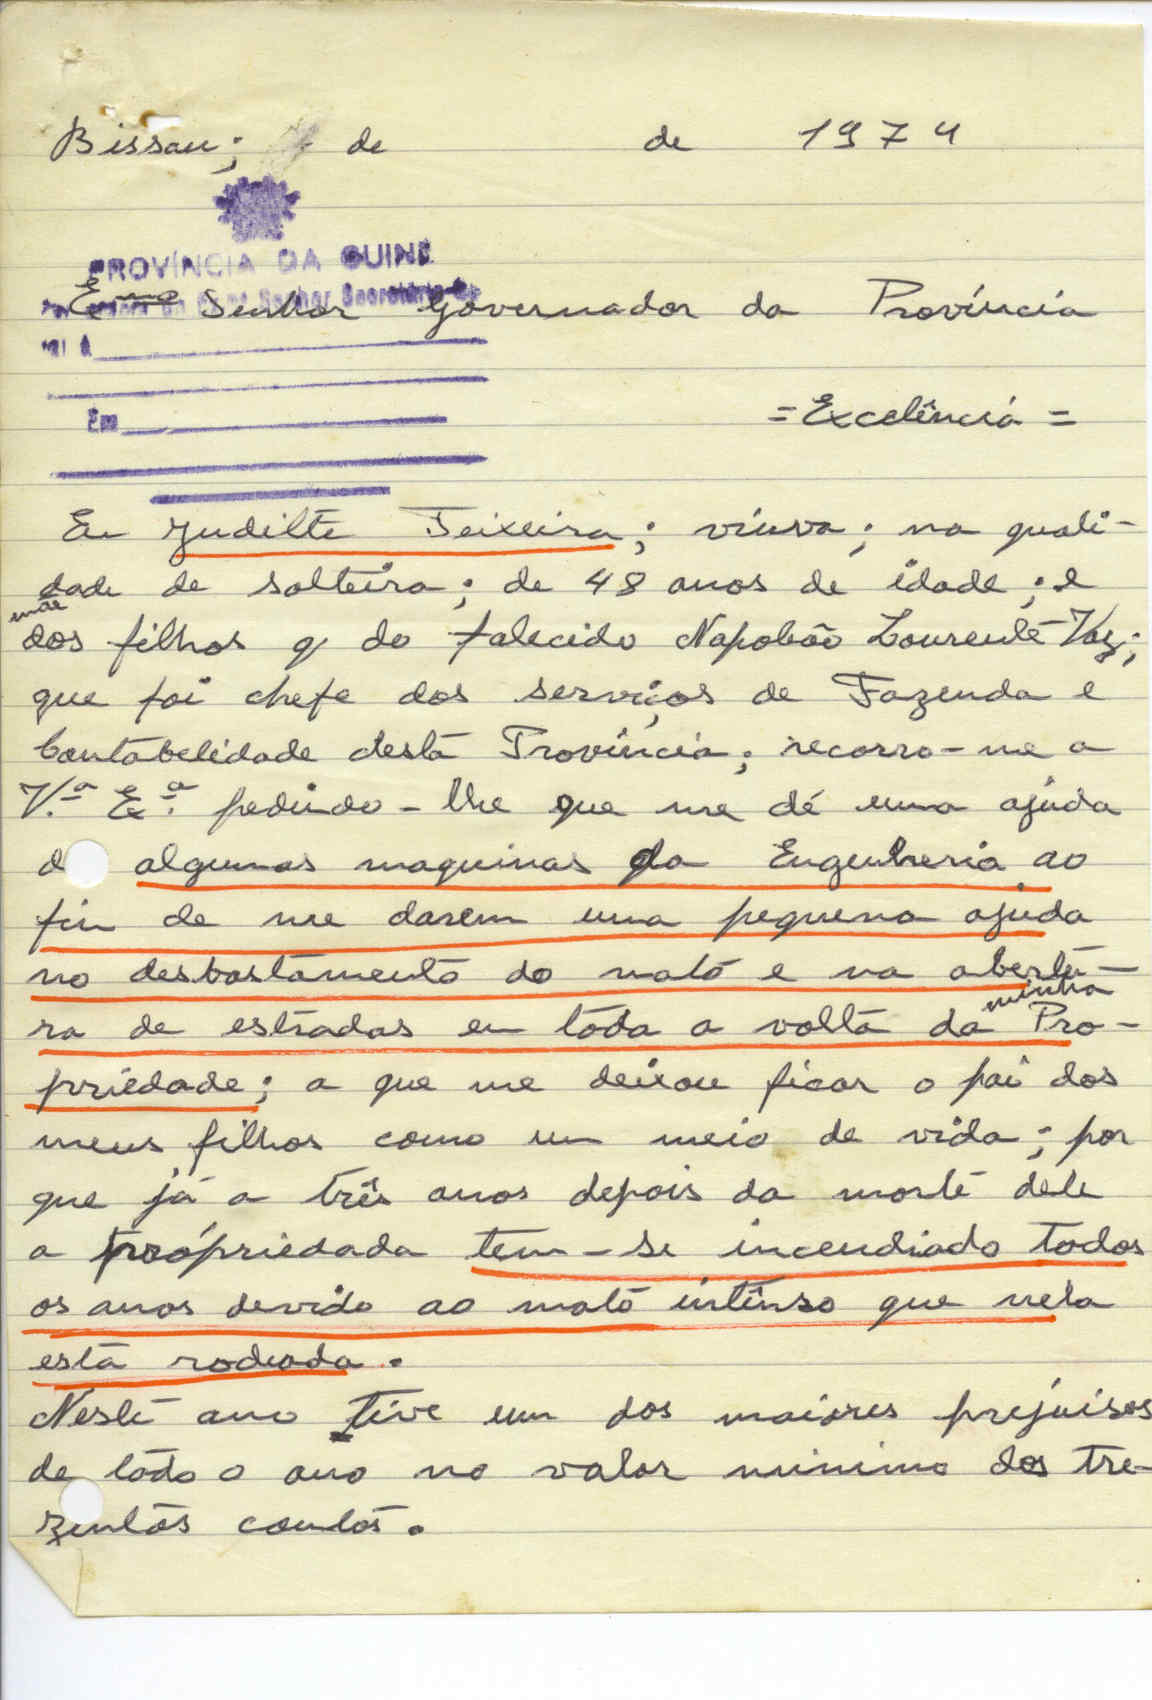 Bissau; de de 1974
PROVÍNCIA DA GUINÉ
Exmo Senhor Governador da Província
Em
= Excelência =
Eu Judilte Teixeira; viúva; na quali-
dade de solteira; de 48 anos de idade; e
mãe
dos filhos q do falecido Napoleão Lourentê Vaz;
que foi chefe dos serviços de Fazenda e
Contabelidade desta Província; recorro-me a
V.ª Ex.ª pedindo-lhe que me dé uma ajuda
d algumas maquinas da Engenheria ao
fim de me darem uma pequena ajuda
no desbastamento do mato e na abertu-
minha
ra de estradas em tôda a volta da Pro-
priedade; a que me deixou ficar o pai dos
meus filhos como um meio de vida; por
que já a três anos depois da morte dele
a própriedada tem-se incendiado todos
os anos devido ao mato intênso que nela
está rodiada.
Neste ano tive um dos maiores prejuisos
de tôdo o ano no valor minimo dos tre-
zentos contos.